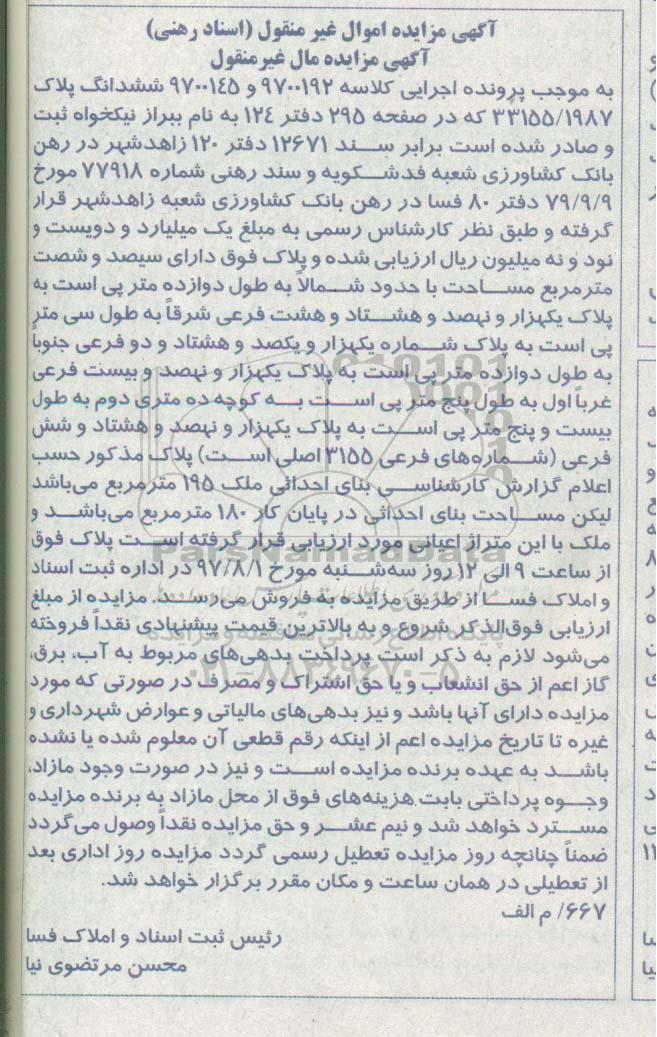 آگهی مزایده اموال غیر منقول (اسناد رهنی)
آگهی مزایده مال غیرمنقول
به موجب پرونده اجرایی کلاسه ۹۷۰۰۱۹۲ و ۹۷۰۰۱۴۵ ششدانگ پلاک
۳۳۱۵۵/۱۹۸۷ که در صفحه ۲۹۵ دفتر ۱۲۴ به نام ببراز نیکخواه ثبت
و صادر شده است برابر سند ۱۲۶۷۱ دفتر ۱۲۰ زاهدشهر در رهن
بانک کشاورزی شعبه فدشکویه و سند رهنی شماره ۷۷۹۱۸ مورخ
۷۹/۹/۹ دفتر ۸۰ فسا در رهن بانک کشاورزی شعبه زاهدشهر قرار
گرفته و طبق نظر کارشناس رسمی به مبلغ یک میلیارد و دویست و
نود و نه میلیون ریال ارزیابی شده و پلاک فوق دارای سیصد و شصت
مترمربع مساحت با حدود شمالاً به طول دوازده متر پی است به
پلاک یکهزار و نهصد و هشتاد و هشت فرعی شرقاً به طول سی متر
پی است به پلاک شماره یکهزار و یکصد و هشتاد و دو فرعی جنوباً
به طول دوازده متر پی است به پلاک یکهزار و نهصد و بیست فرعی
غرباً اول به طول پنج متر پی است به کوچه ده متری دوم به طول
بیست و پنج متر پی است به پلاک یکهزار و نهصد و هشتاد و شش
فرعی (شماره‌های فرعی ۳۱۵۵ اصلی است) پلاک مذکور حسب
اعلام گزارش کارشناسی بنای احداثی ملک ۱۹۵ مترمربع می‌باشد
لیکن مساحت بنای احداثی در پایان کار ۱۸۰ مترمربع می‌باشد و
ملک با این متراژ اعیانی مورد ارزیابی قرار گرفته است پلاک فوق
از ساعت ۹ الی ۱۲ روز سه‌شنبه مورخ ۹۷/۸/۱ در اداره ثبت اسناد
و املاک فسا از طریق مزایده به فروش می‌رسد. مزایده از مبلغ
ارزیابی فوق‌الذکر شروع و به بالاترین قیمت پیشنهادی نقداً فروخته
می‌شود لازم به ذکر است پرداخت بدهی‌های مربوط به آب، برق،
گاز اعم از حق انشعاب و یا حق اشتراک و مصرف در صورتی که مورد
مزایده دارای آنها باشد و نیز بدهی‌های مالیاتی و عوارض شهرداری و
غیره تا تاریخ مزایده اعم از اینکه رقم قطعی آن معلوم شده یا نشده
باشد به عهده برنده مزایده است و نیز در صورت وجود مازاد،
وجوه پرداختی بابت هزینه‌های فوق از محل مازاد به برنده مزایده
مسترد خواهد شد و نیم عشر و حق مزایده نقداً وصول می‌گردد
ضمناً چنانچه روز مزایده تعطیل رسمی گردد مزایده روز اداری بعد
از تعطیلی در همان ساعت و مکان مقرر برگزار خواهد شد.
۶۶۷/ م الف
رئیس ثبت اسناد و املاک فسا
محسن مرتضوی نیا
ParsNamadData
۰۲۱-۸۸۳۴۹۶۷۰-۵